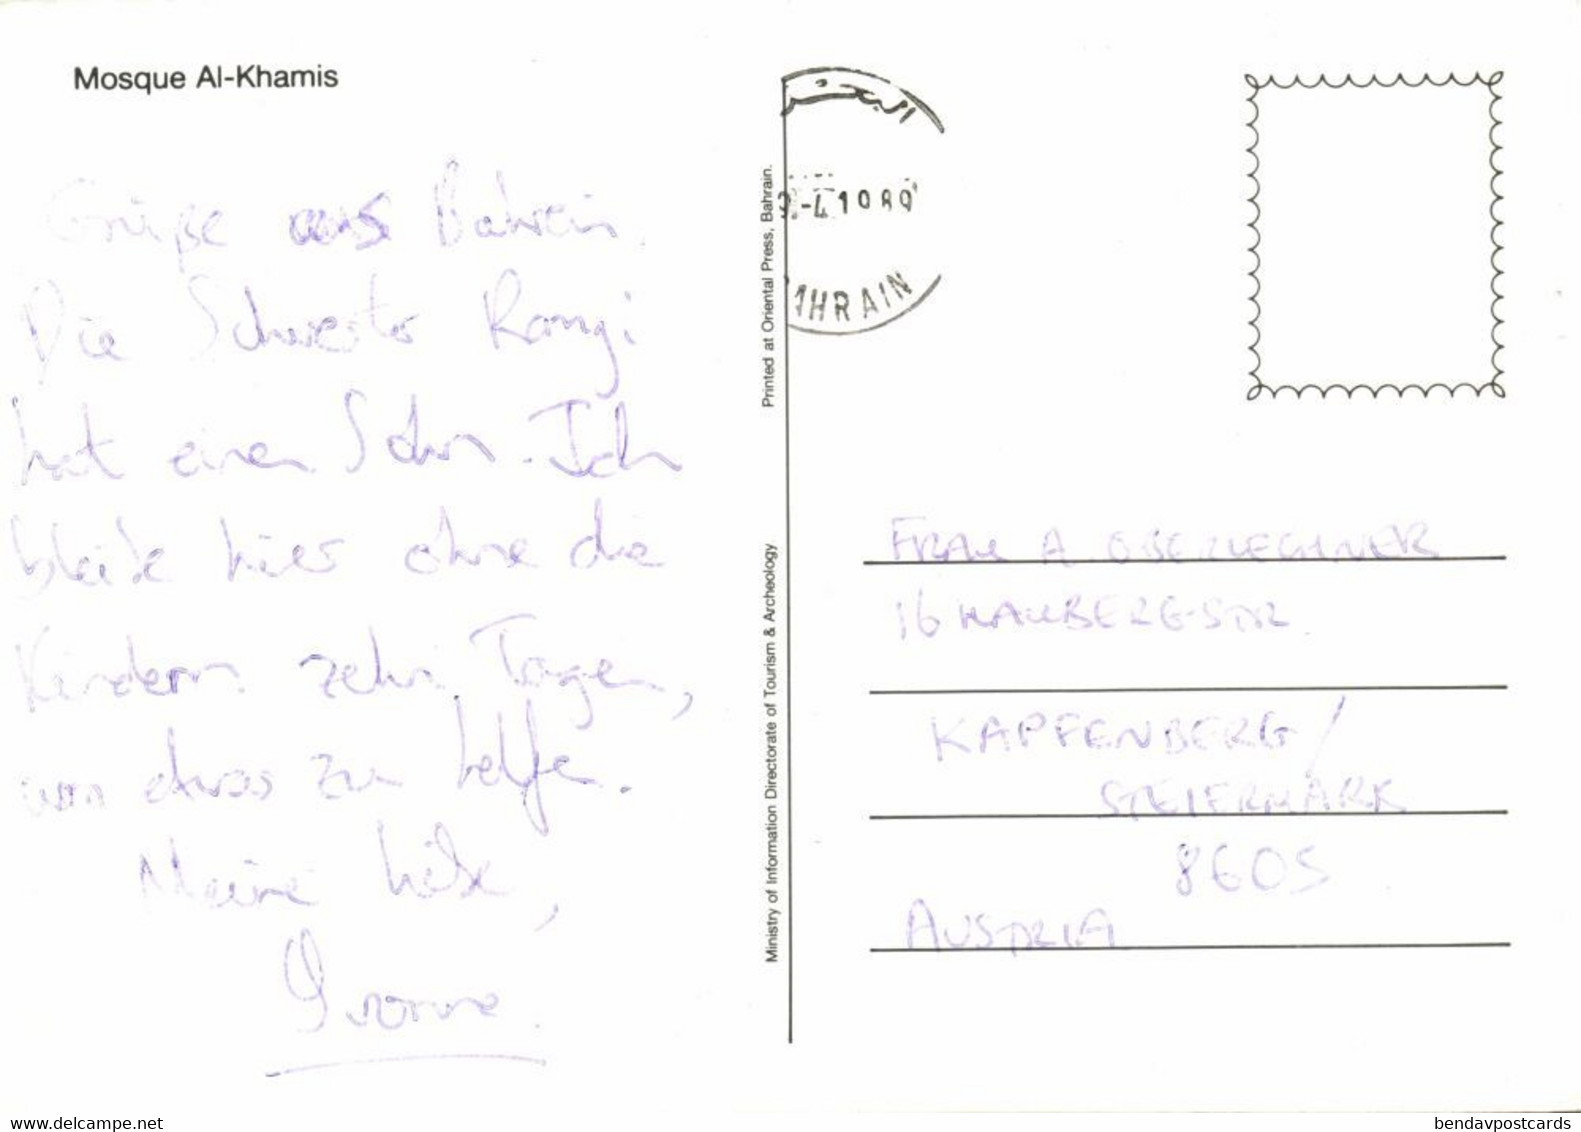 Mosque Al-Khamis
Grüße aus Bahrein.
Die Schwester Romgi
hat einen Sohn. Ich
bleibe hier ohne die
Kindern zehn Tagen,
um etwas zu helfen.
Meine Liebe,
Yvonne.
Printed at Oriental Press, Bahrain.
Ministry of Information Directorate of Tourism & Archeology
-4 1989
BAHRAIN
FRAU A OBERLECHNER
KAPFENBERG/
STEIERMARK
8605
AUSTRIA
www.delcampe.net
bendavpostcards